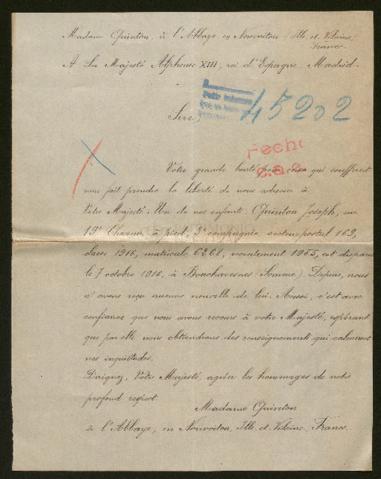 Madame Quinton, à l'Abbaye en Nouvoitou, Ille et Vilaine,
France.
A Sa Majesté Alphonse XIII, roi d'Espagne, Madrid.
45202
Sire,
Fecho
Votre grande bonté pour ceux qui souffrent
nous fait prendre la liberté de nous adresser à
Votre Majesté. Un de nos enfants, Quinton Joseph, au
19e Chasseurs à pied, 3e compagnie, secteur postal 162,
classe 1916, matricule 6268, recrutement 1965, est disparu
le 7 octobre 1916, à Bouchavesnes (Somme). Depuis, nous
n'avons reçu aucune nouvelle de lui. Aussi, c'est avec
confiance que nous avons recours à votre Majesté, espérant
que par elle nous obtiendrons des renseignements qui calmeront
nos inquiétudes.
Daignez, Votre Majesté, agréer les hommages de notre
profond respect.
Madame Quinton
à l'Abbaye, en Nouvoitou, Ille et Vilaine, France.